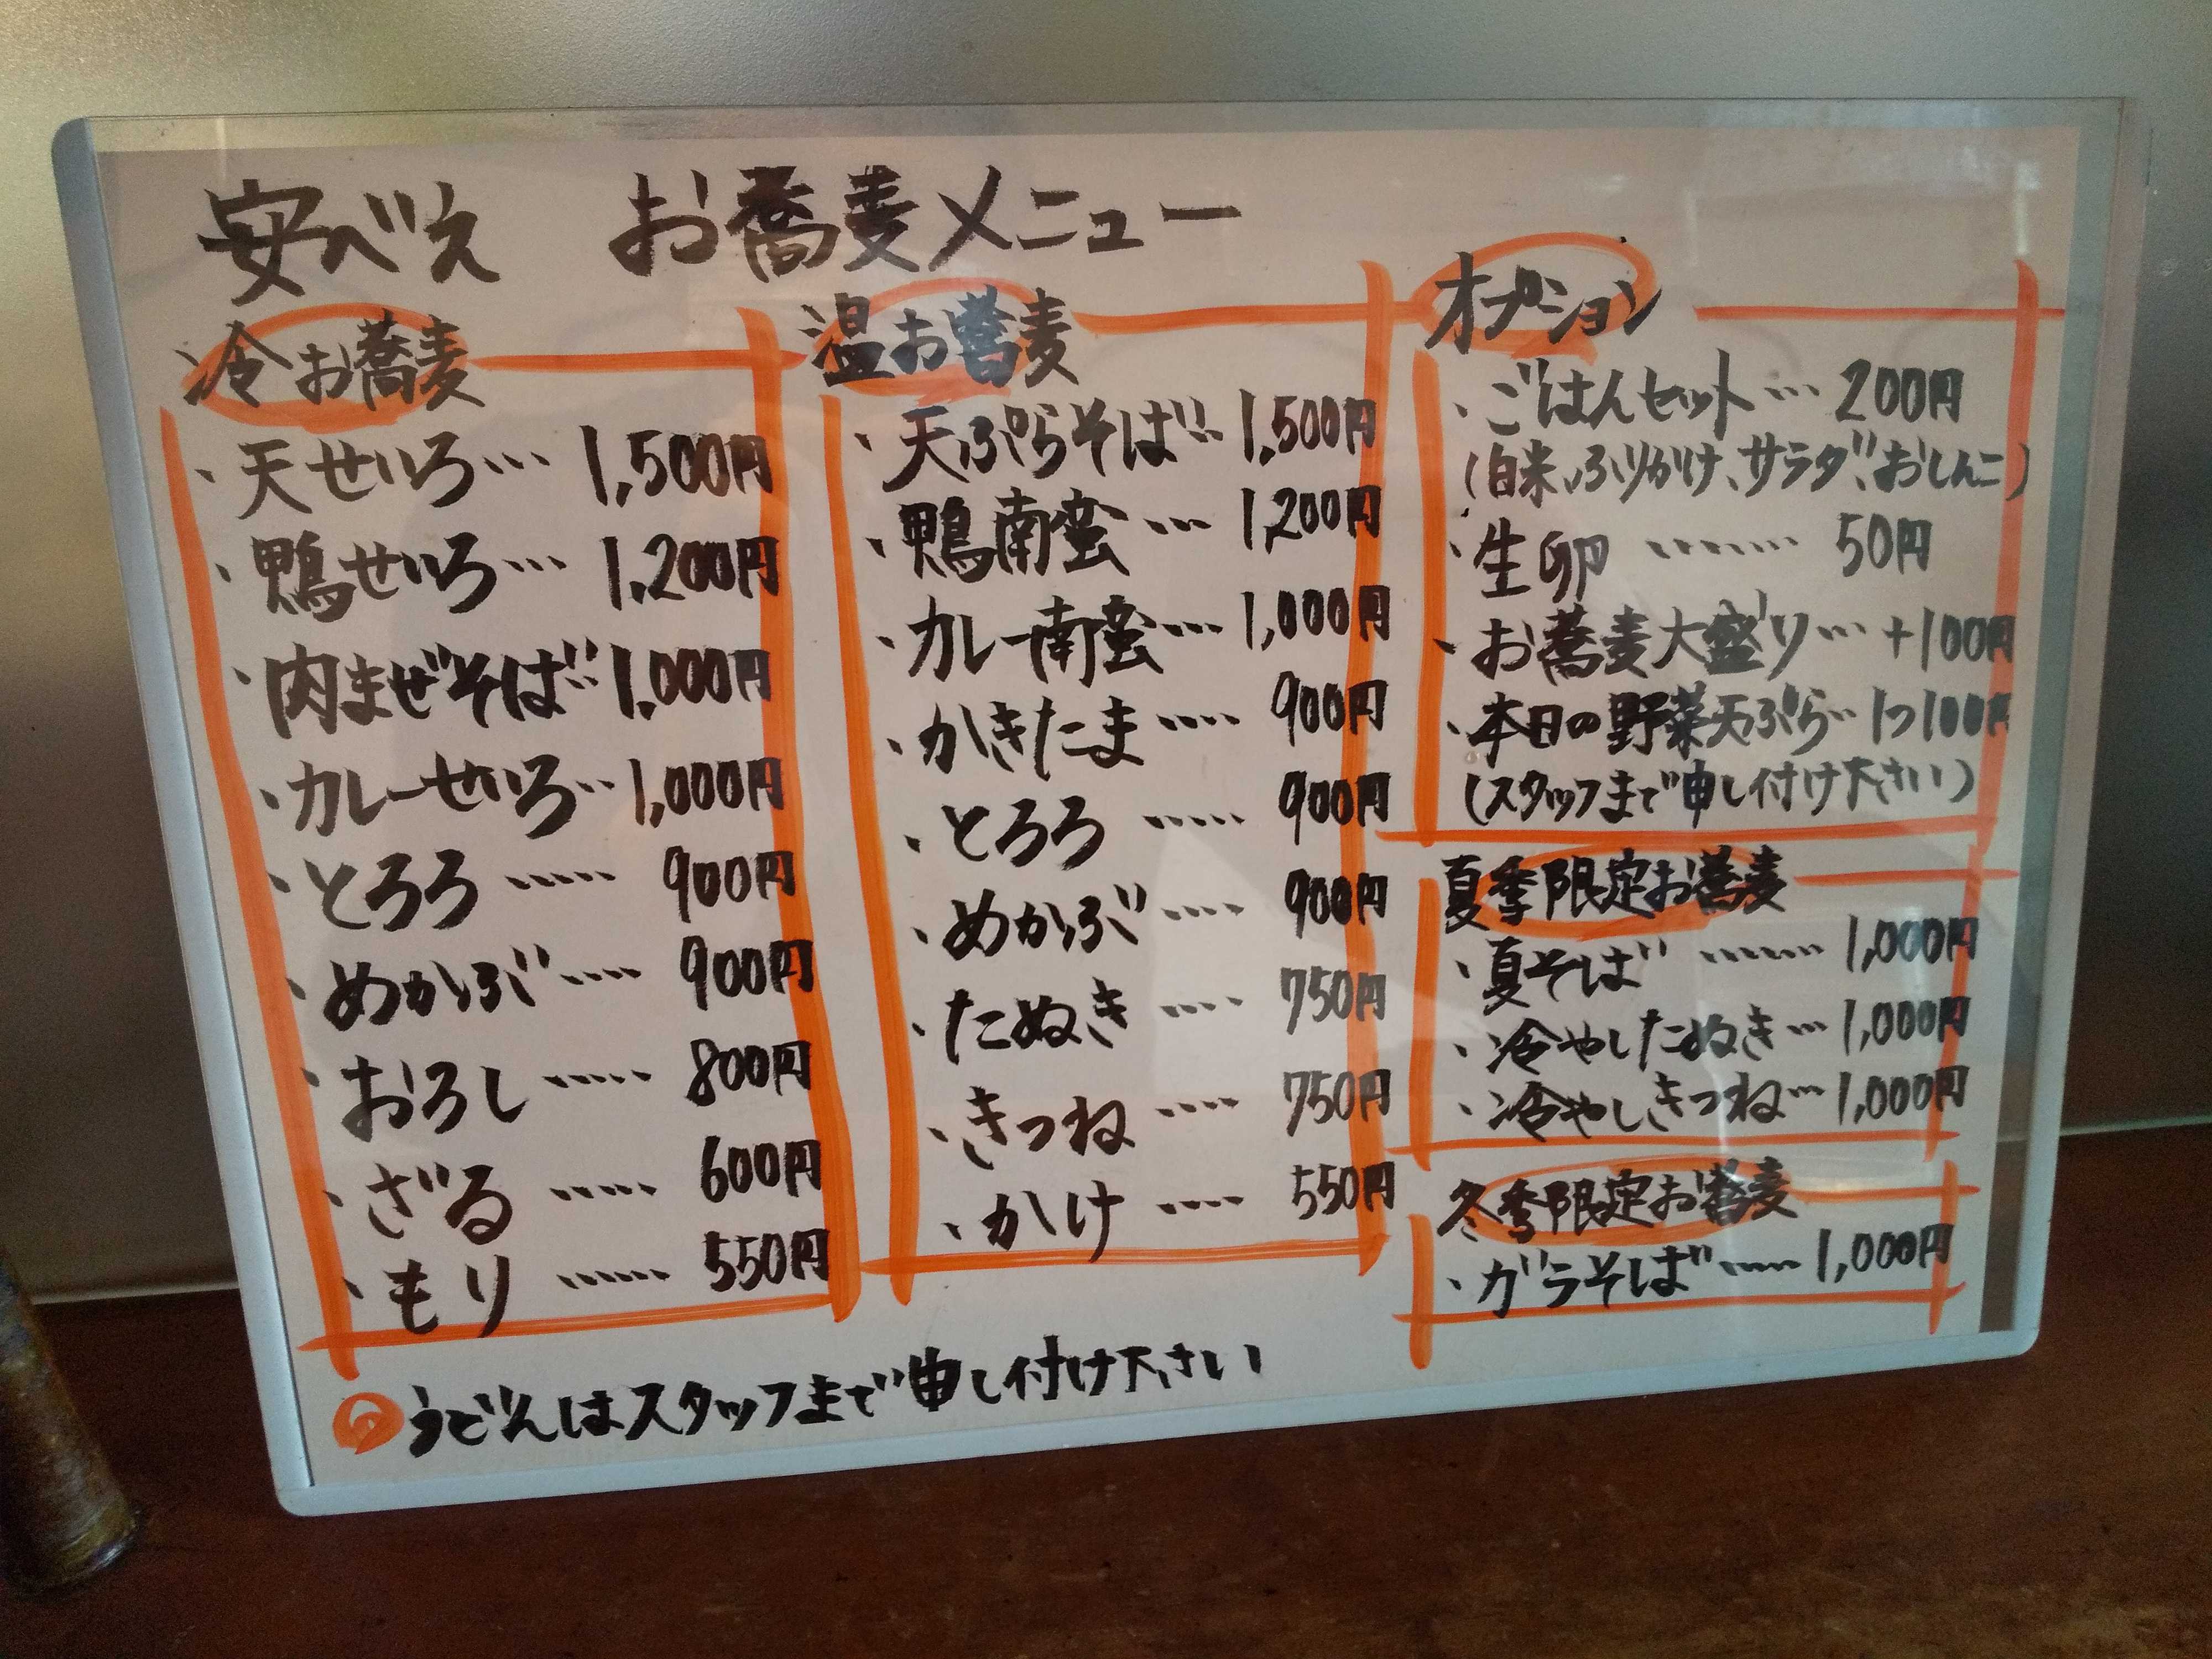 安べえ お蕎麦メニュー
冷お蕎麦
・天せいろ… 1,500円
・鴨せいろ… 1,200円
・肉まぜそば… 1,000円
・カレーせいろ… 1,000円
・とろろ…… 900円
・めかぶ…… 900円
・おろし…… 800円
・ざる…… 600円
・もり…… 550円
温お蕎麦
・天ぷらそば… 1,500円
・鴨南蛮… 1,200円
・カレー南蛮… 1,000円
・かきたま…… 900円
・とろろ…… 900円
・めかぶ…… 900円
・たぬき…… 750円
・きつね…… 750円
・かけ…… 550円
オプション
・ごはんセット… 200円
(白米、ふりかけ、サラダ、おしんこ)
・生卵…… 50円
・お蕎麦大盛り… +100円
・本日の野菜天ぷら… 1つ100円
(スタッフまで申し付け下さい)
夏季限定お蕎麦
・夏そば…… 1,000円
・冷やしたぬき… 1,000円
・冷やしきつね… 1,000円
冬季限定お蕎麦
・ガラそば…… 1,000円
うどんはスタッフまで申し付け下さい